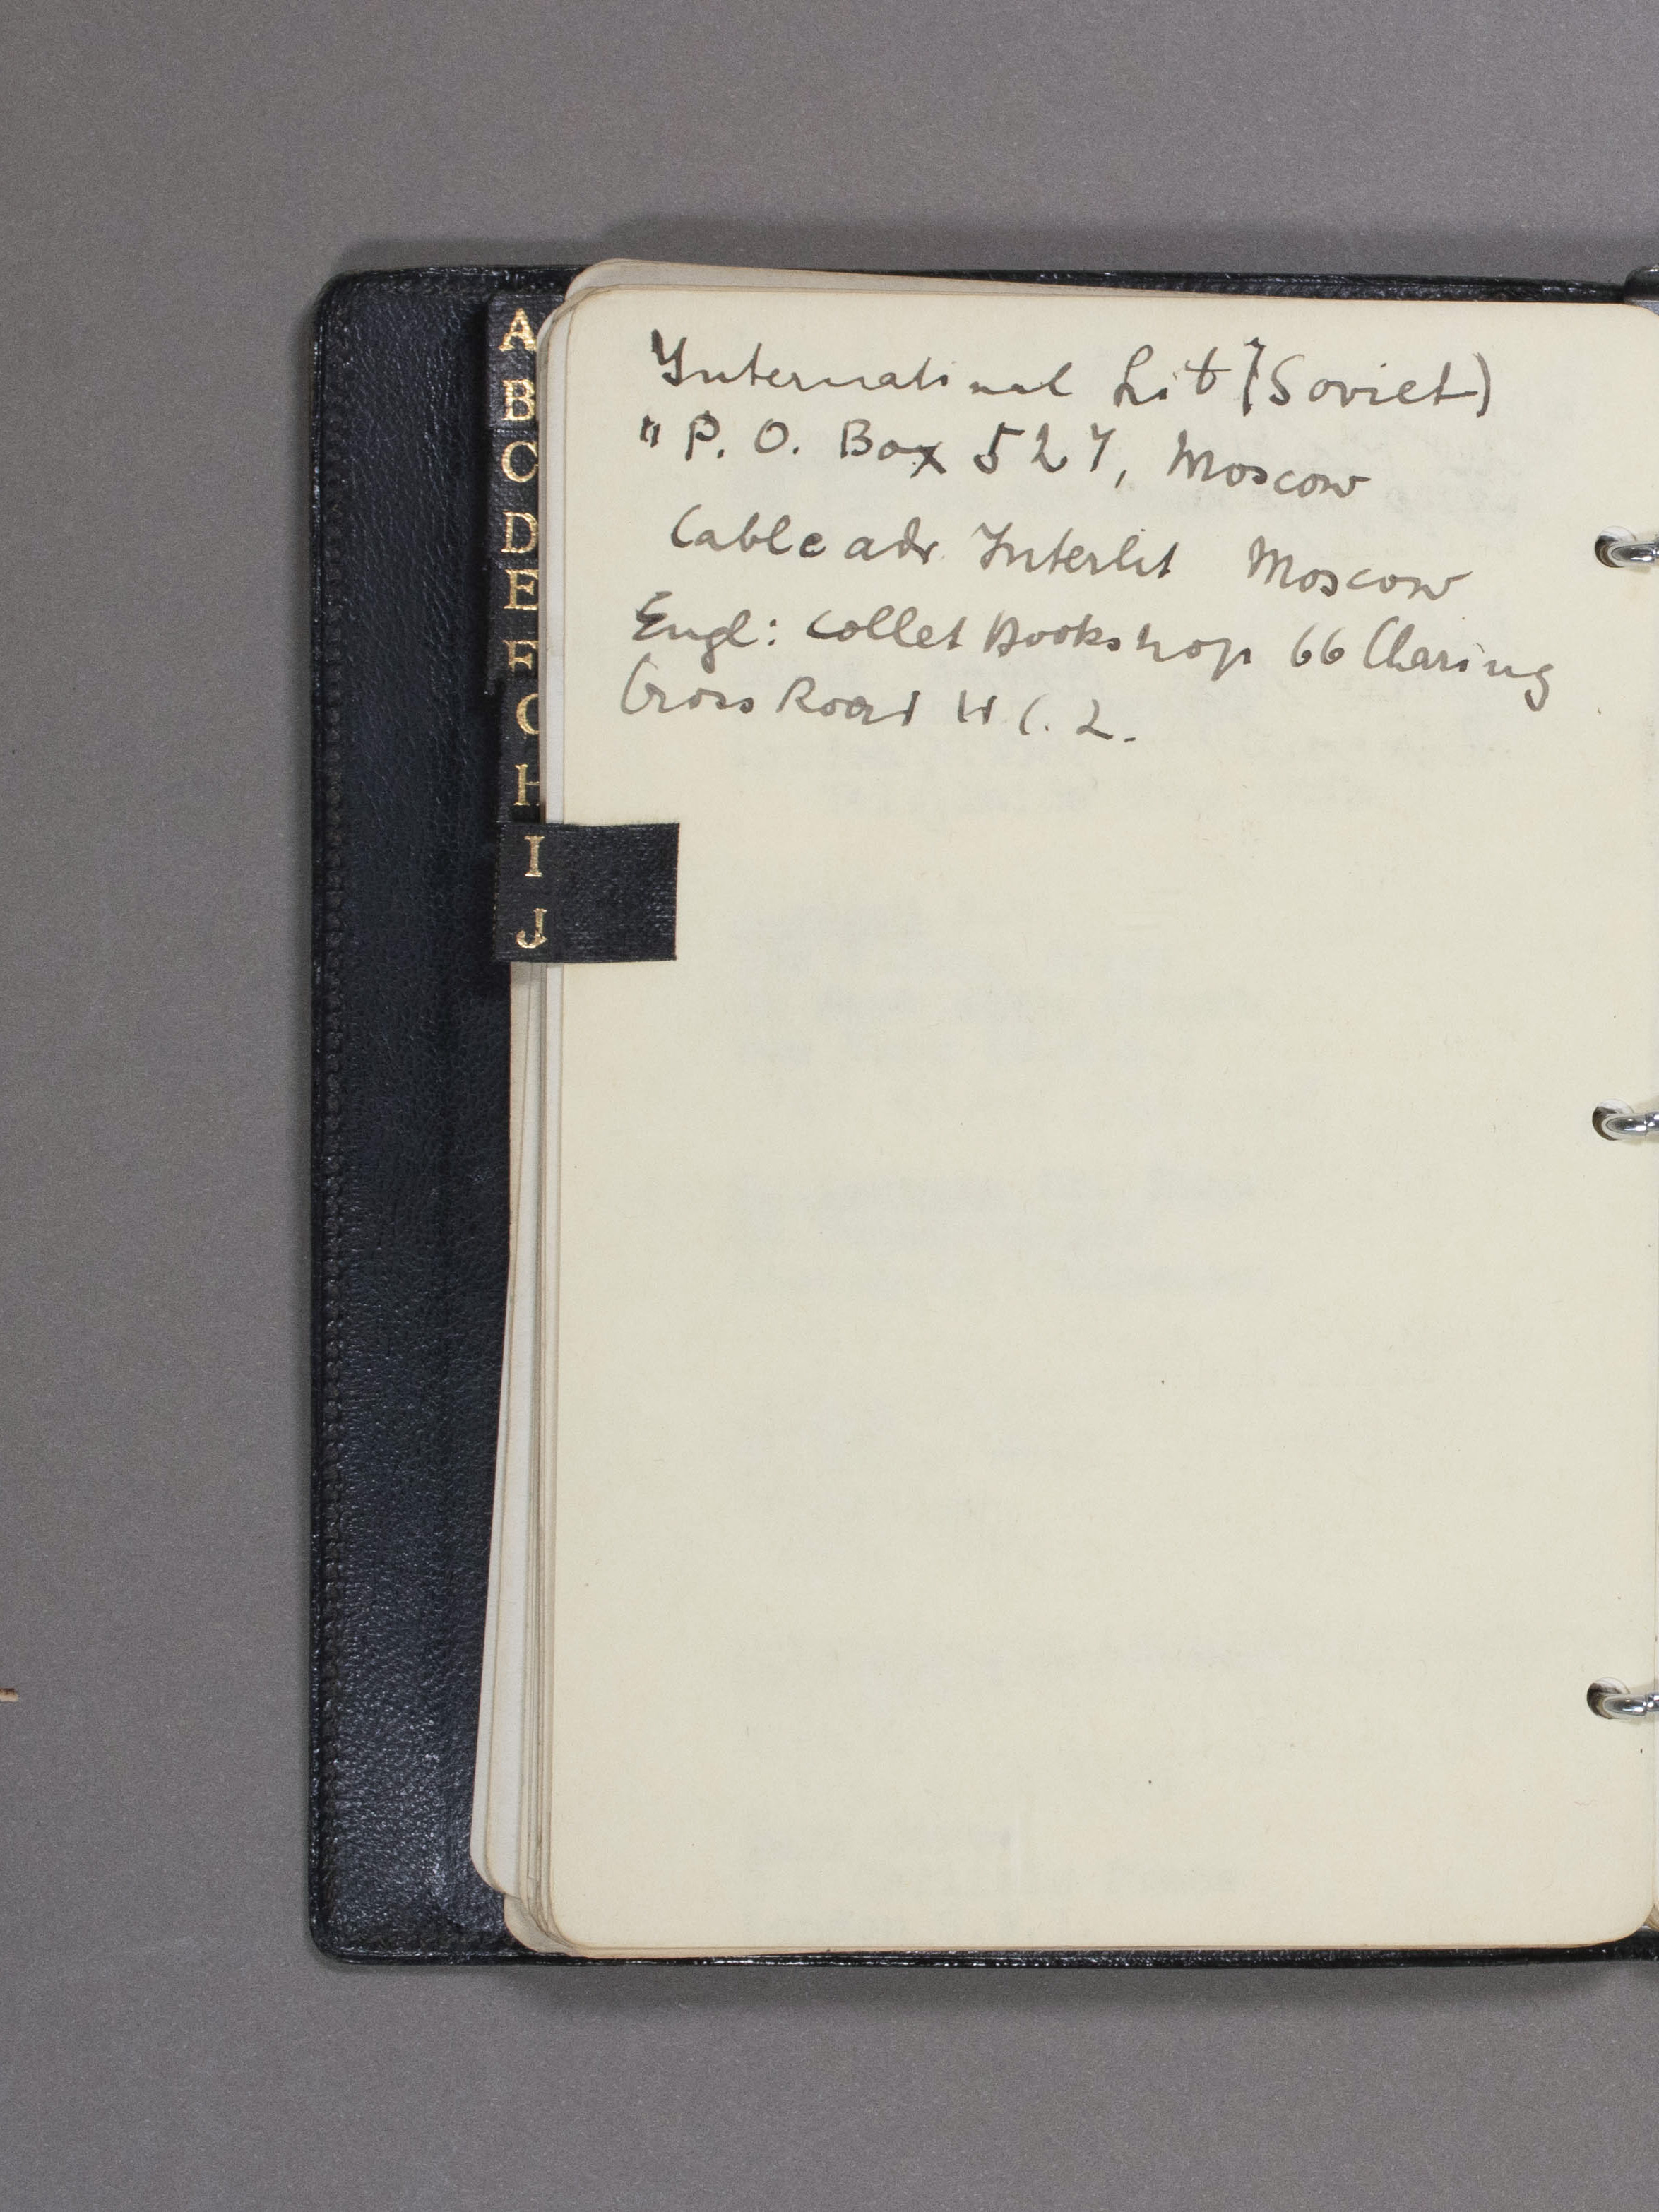 International Lit (Soviet)
" P. O. Box 527, Moscow
Cable adr. Interlit Moscow
Engl: Collet Bookshop 66 Charing
Cross Road W C. 2.
A
B
C
D
E
F
G
H
I
J